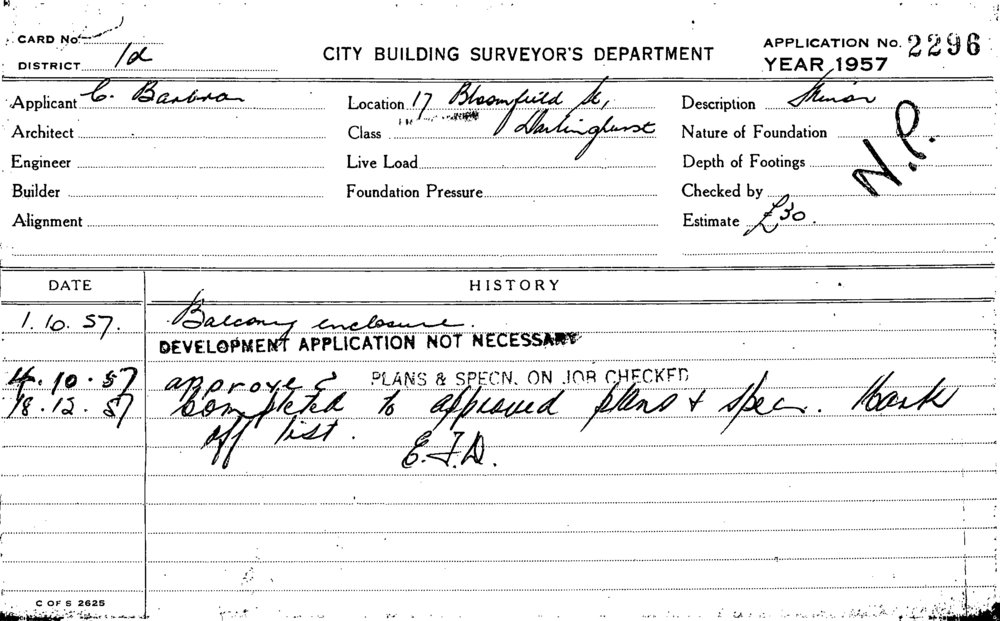 CARD No.
DISTRICT 1d
CITY BUILDING SURVEYOR'S DEPARTMENT
APPLICATION No. 2296
YEAR 1957
Applicant C.
Location 17 Bloomfield St,
Description Minor
Architect
Class Darlinghurst
Nature of Foundation
N.P.
Engineer
Live Load
Depth of Footings
Builder
Foundation Pressure
Checked by
Alignment
Estimate £30.
DATE HISTORY
1.10.57. Balcony enclosure.
DEVELOPMENT APPLICATION NOT NECESSARY
4.10.57 approved PLANS & SPECN. ON JOB CHECKED
18.12.57 Completed to approved plans & spec. Mark
off list. E.J.D.
C OF S 2625